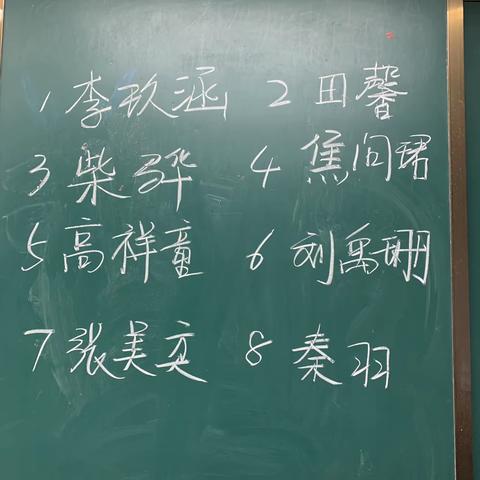 1 李玖涵 2 田馨
3 柴骅 4 焦间珺
5 高祥童 6 刘禹珊
7 张美奕 8 秦羽